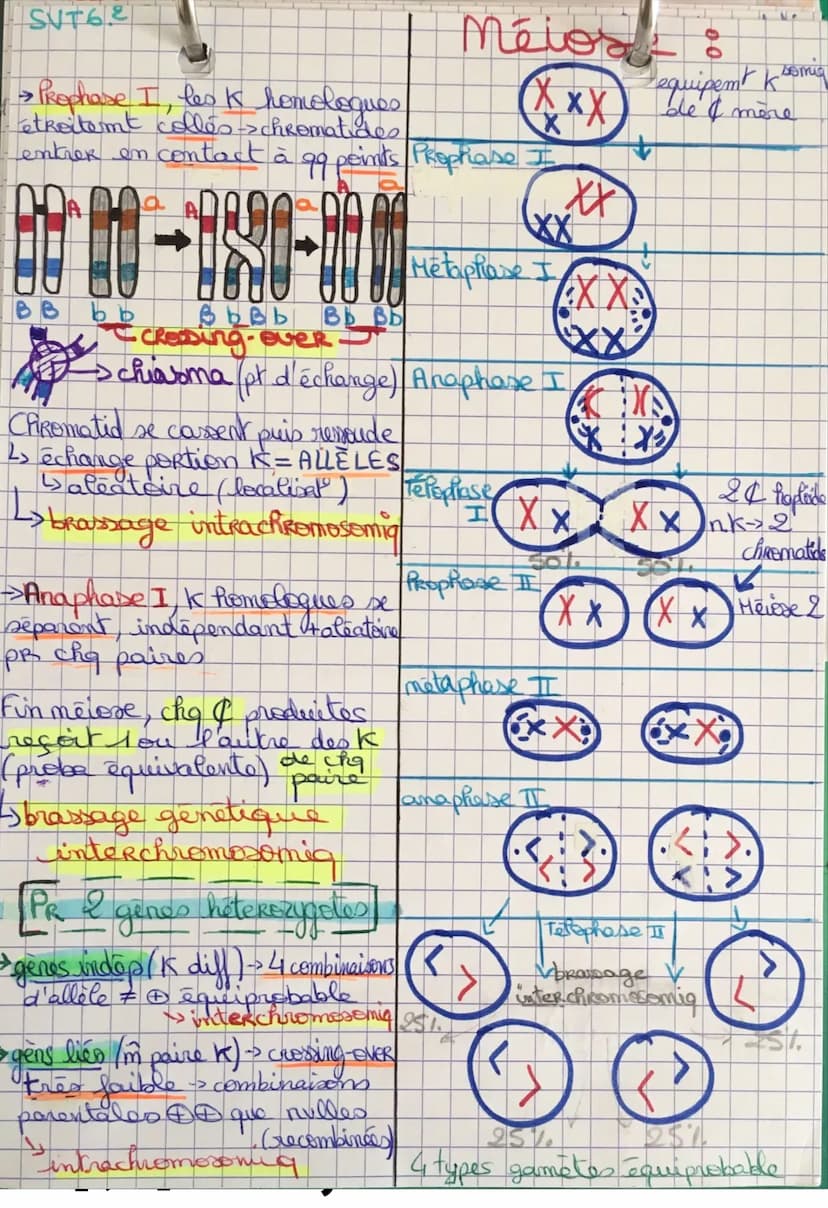 SVT6.2
Méiose :
→ Prophase I, les K homologues
étroitemt collés → chromatides
entrer en contact à qq points
A a A a A a
B B b b B b B b B b B b
crossing-over
→ chiasma (pt d'échange)
Chromatid se cassent puis ressoude
↳ échange portion K = ALLÈLES
↳ aléatoire (localist°)
↳ brassage intrachromosomiq
→ Anaphase I, K homologues se
séparent, indépendant + aléatoire
pr chq paires
Fin méiose, chq ₵ produites
reçoit 1 ou l'autre des K
(proba équivalente) de chq
paire
↳ brassage génétique
interchromosomiq
[Pr 2 gènes hétérozygotes]
→ gènes indép (K diff) → 4 combinaisons
d'allèle ≠ ⊕ équiprobable
↳ interchromosomiq
→ gèns liés (m̂ paire K) → crossing-over
très faible → combinaisons
parentales ⊕⊕ que nvlles
(recombinées)
↳ intrachromosomiq
equipemt Ksomiq
de ₵ mère
Prophase I
Métaphase I
Anaphase I
Télophase
I
2₵ haploïde
nk → 2
chromatids
50% 50%
Prophase II
Méiose 2
métaphase II
anaphase II
Télophase II
brassage
interchromosomiq
25% 25%
25% 25%
4 types gamètes équiprobable